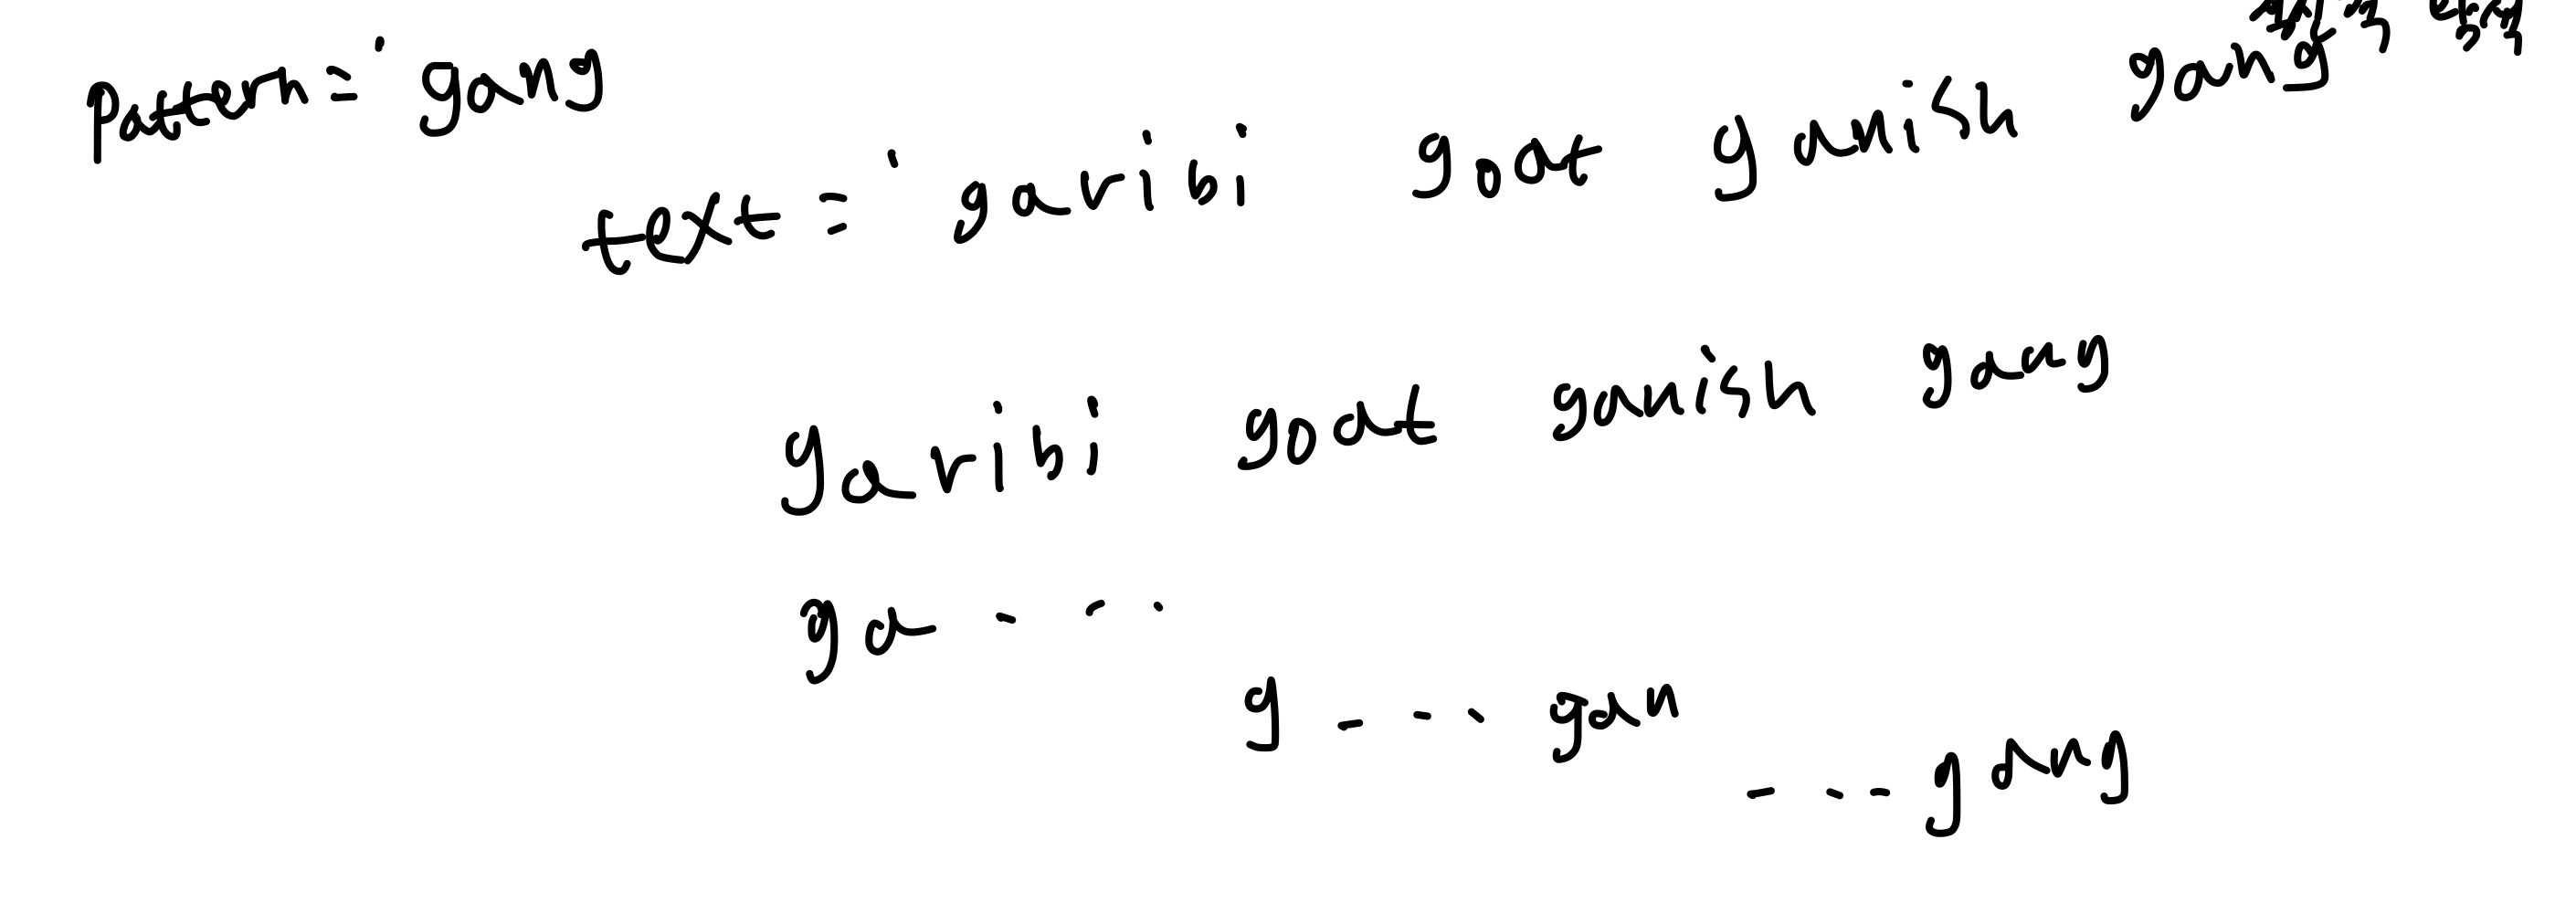 Pattern = ' gang
text = ' garibi goat ganish gang
garibi goat ganish gang
ga - - -
g - - - gan
- - - gang